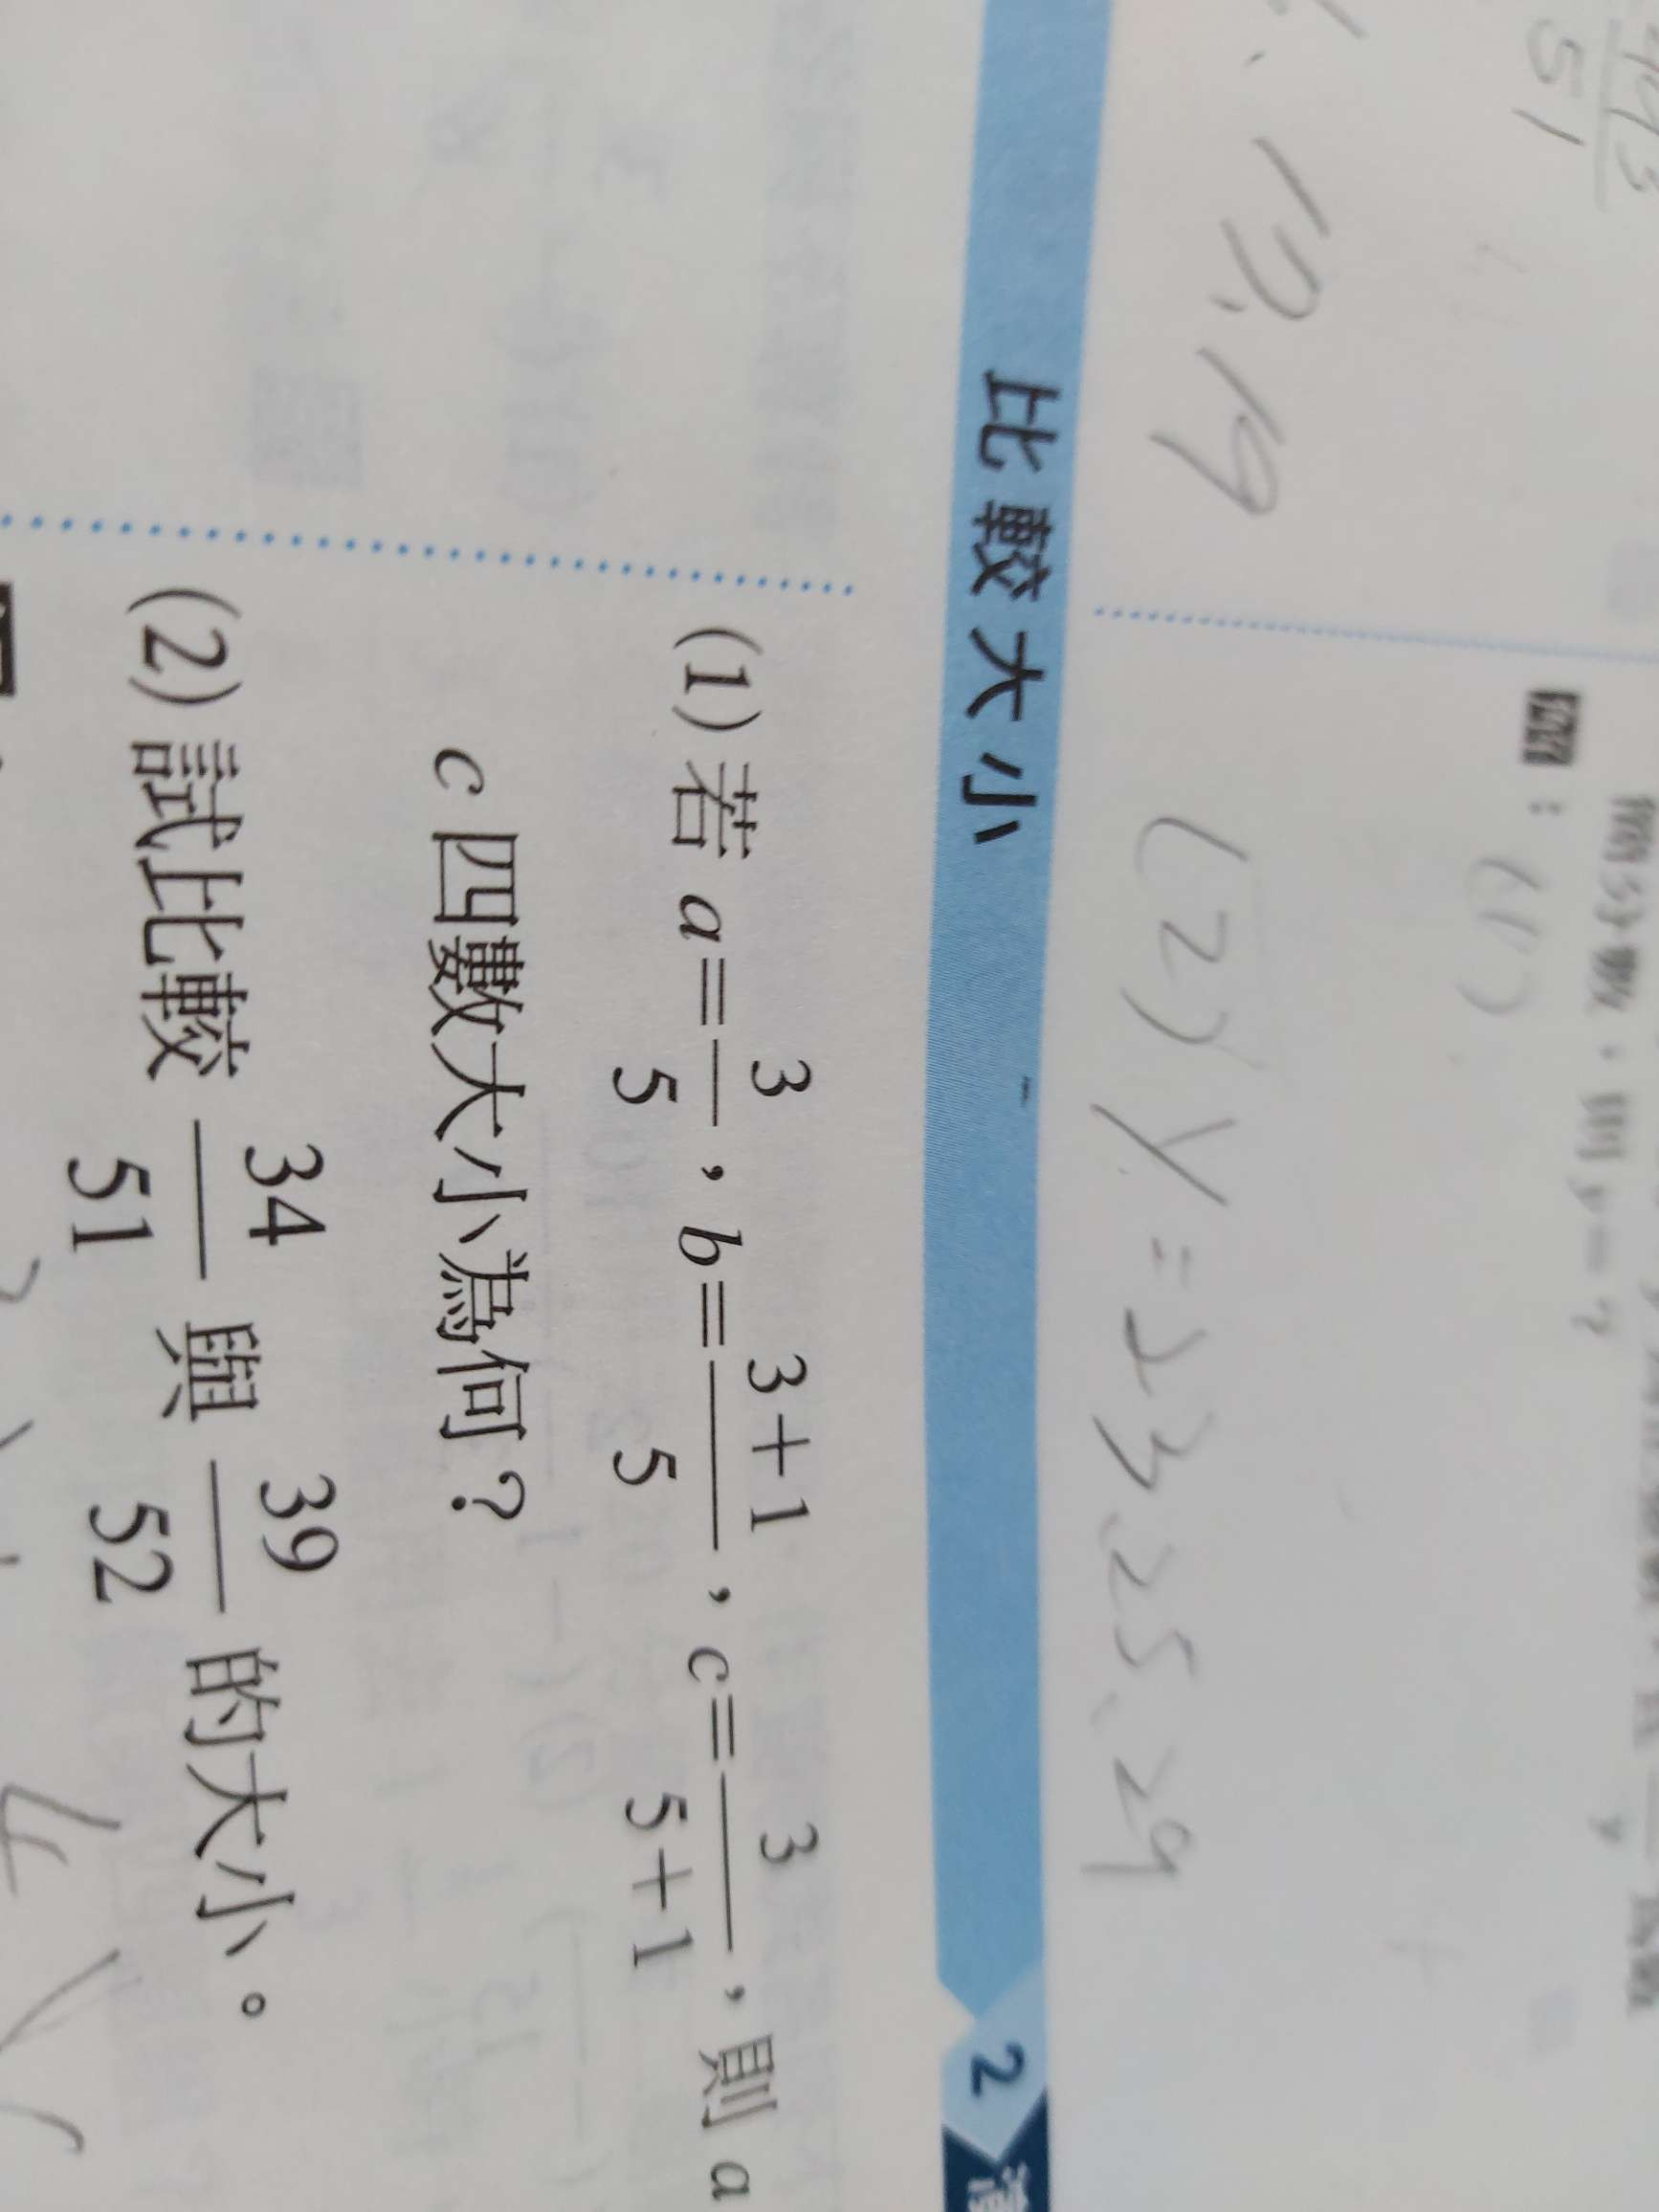 51
17.19
(1)
(2) y = 23.25.29
比較大小
2
(1) 若 a=3/5,b=(3+1)/5,c=3/(5+1),則 a
c 四數大小為何?
(2) 試比較 34/51 與 39/52 的大小。